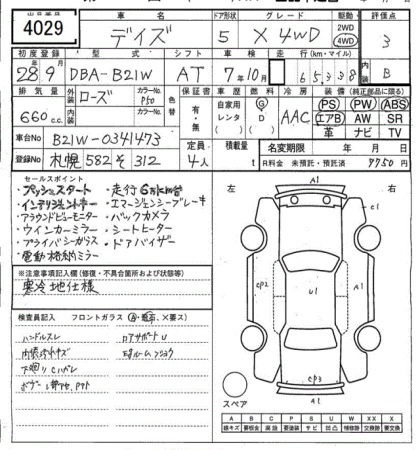 出品番号 車名 ドア形状 グレード 駆動 評価点
4029 デイズ 5 X 4WD 2WD 4WD 3
初度登録 型式 シフト 車検 走行(km・マイル) 内装
28年9月 DBA-B21W AT 7年10月 65338 B
排気量 外装 内装 カラーNo. 色替 保証書 車歴 燃料 冷房 装備(純正部品に限る)
660c.c. ローズ P50 有・無 自家用 レンタ G D AAC PS PW ABS
カラーNo. エアB AW SR
革 ナビ TV
車台No B21W-0341473 定員 積載量 名変期限 年 月 日
登録No 札幌 582 そ 312 4人 t R料金 未預託・預託済 7750円
セールスポイント
・プッシュスタート ・走行6万km台
・インテリジェントキー ・エマージェンシーブレーキ
・アラウンドビューモニター ・バックカメラ
・ウインカーミラー ・シートヒーター
・プライバシーガラス ・ドアバイザー
・電動格納ミラー
※注意事項記入欄(修復・不具合箇所および状態等)
寒冷地仕様
検査員記入 フロントガラス(A・飛石・X要ス)
ハンドルスレ ロアサポートU
内張ルーフキズ
下廻りCハガレ
左 右
c1
A1
cp2 U1 A1
cp3
A1
スペア
A B C P S U W X XX X